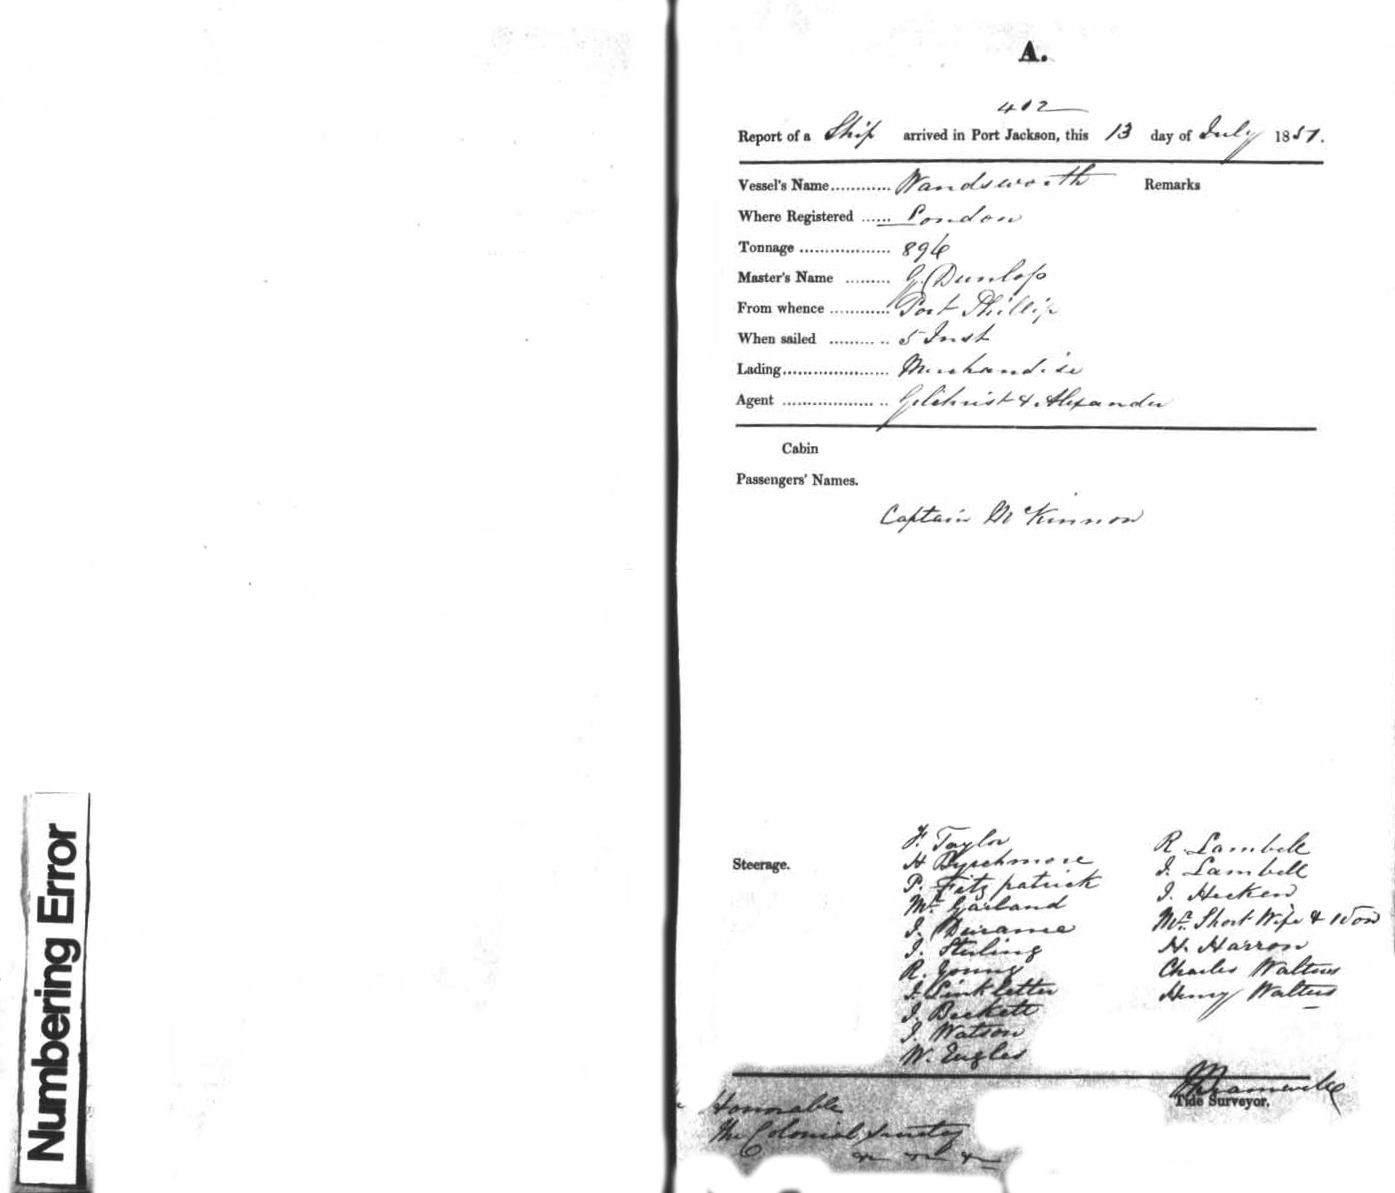 A.
402
Report of a Ship arrived in Port Jackson, this 13 day of July 1851.
Vessel's Name............ Wandsworth Remarks
Where Registered ...... London
Tonnage .................. 896
Master's Name ......... G. Dunlop
From whence ............ Port Phillip
When sailed ......... .. 5 Inst
Lading..................... Merchandise
Agent .................. .. Gilchrist & Alexander
Cabin
Passengers' Names.
Captain McKinnon
Steerage.
F. Taylor
H
P. Fitzpatrick
Mr. Garland
J.
J. Sterling
R. Young
J. Linkletter
J. Beckett
J. Watson
W. Eagles
R. Lambell
J. Lambell
J. Hicken
Mr. Short Wife & Son
H. Harron
Charles Walters
Henry Walters
Tide Surveyor.
Honorable
The Colonial Secretary
&c &c &c
Numbering Error